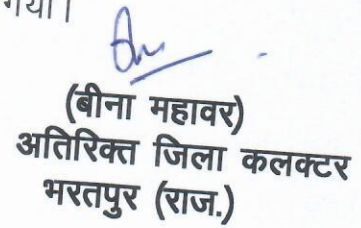 गया।
(बीना महावर)
अतिरिक्त जिला कलक्टर
भरतपुर (राज.)